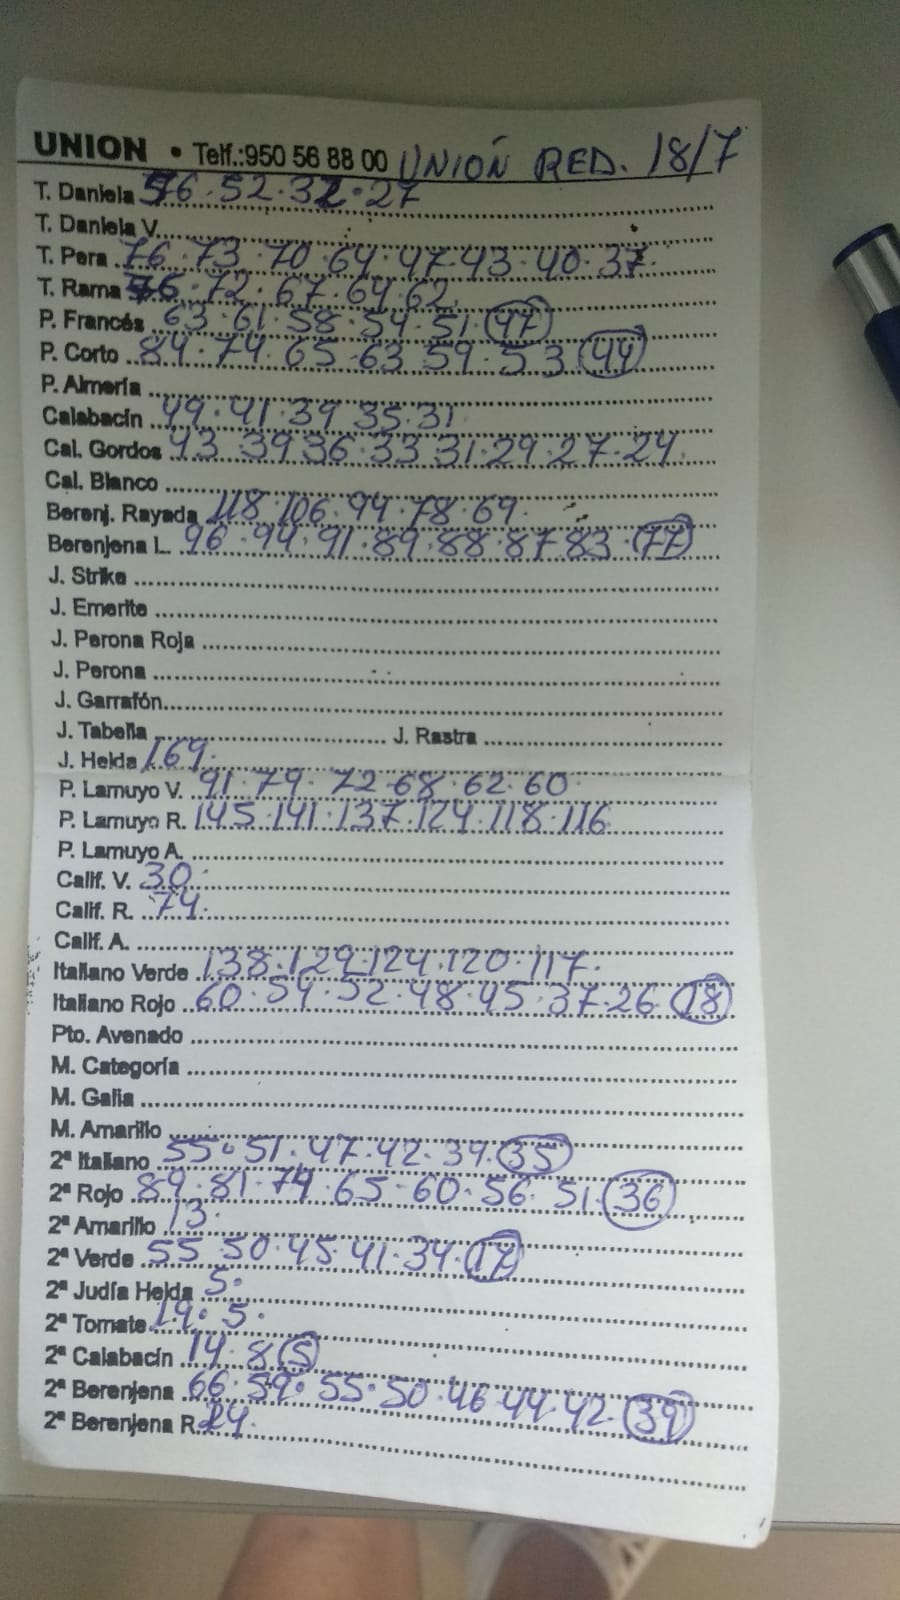 UNION • Telf.:950 56 88 00 UNIÓN RED. 18/7
T. Daniela 56·52·32·27
T. Daniela V.
T. Pera 76·73·70·64·47·43·40·37
T. Rama 76·72·67·64·62
P. Francés 63·61·58·54·51·47
P. Corto 84·74·65·63·59·53 44
P. Almería
Calabacín 49·41·39 35·31
Cal. Gordos 43 39 36·33 31·29·27·24
Cal. Blanco
Berenj. Rayada 118·106·94·78·69
Berenjena L. 96·94·91·89·88·87·83·77
J. Strike
J. Emerite
J. Perona Roja
J. Perona
J. Garrafón
J. Tabella J. Rastra
J. Helda 169
P. Lamuyo V. 91·79·72·68·62·60
P. Lamuyo R. 145·141·137·124·118·116
P. Lamuyo A.
Calif. V. 30
Calif. R. 74
Calif. A.
Italiano Verde 138·129·124·120·117
Italiano Rojo 60·54·52·48·45·37·26 18
Pto. Avenado
M. Categoría
M. Galia
M. Amarillo
2ª Italiano 55·51·47·42·39·35
2ª Rojo 89·81·74·65-60·56·51·36
2ª Amarillo 13
2ª Verde 55 50·45·41·34·17
2ª Judía Helda 5
2ª Tomate 19·5
2ª Calabacín 14·8 5
2ª Berenjena 66·59·55·50·46·44·42·39
2ª Berenjena R. 24